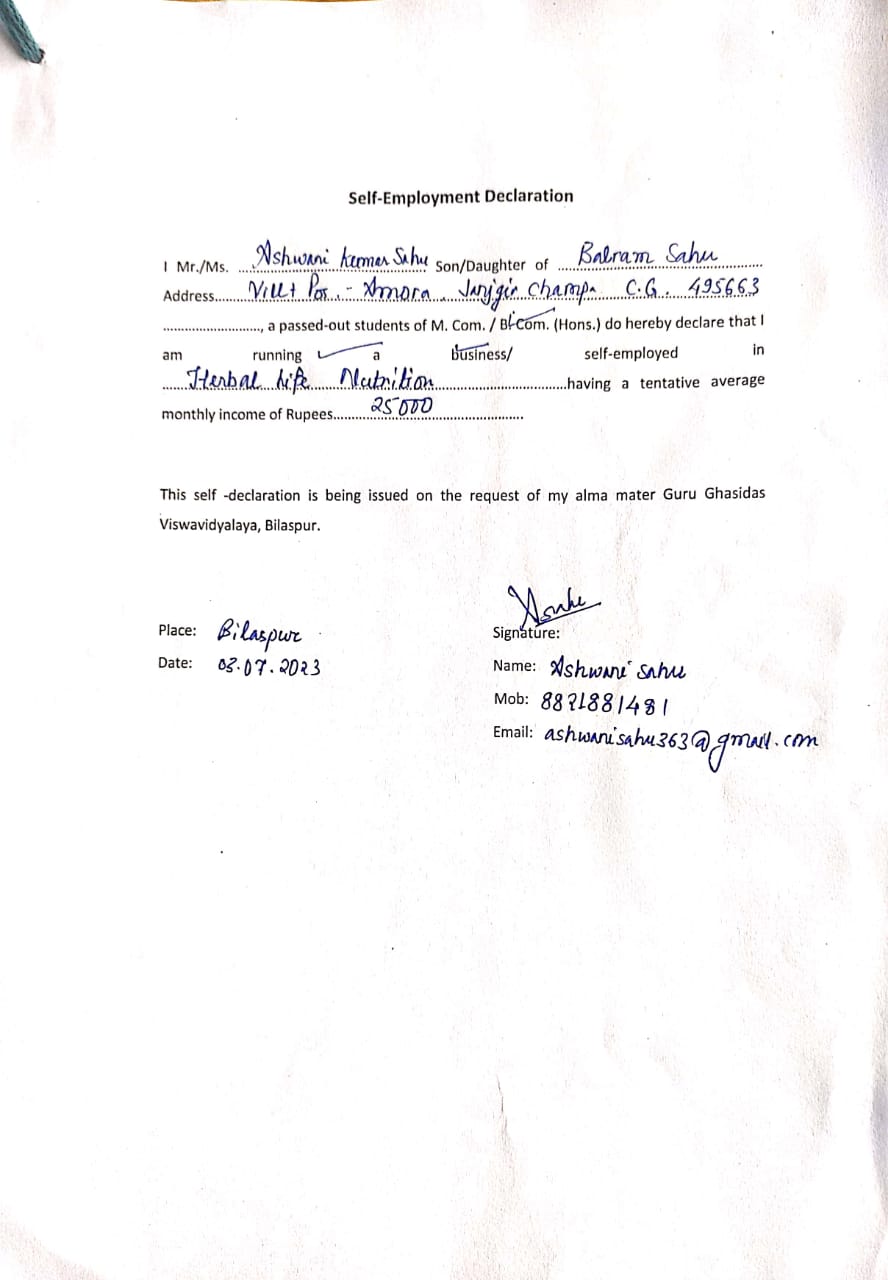 Self-Employment Declaration
I Mr./Ms. Ashwani Kumar Sahu Son/Daughter of Balram Sahu
Address Vill+ Pos. - Amora, Janjgir Champa C.G. 495663
, a passed-out students of M. Com. / B. Com. (Hons.) do hereby declare that I
am running a business/ self-employed in
Herbal Life Nutrition having a tentative average
monthly income of Rupees 25000
This self -declaration is being issued on the request of my alma mater Guru Ghasidas
Viswavidyalaya, Bilaspur.
Place: Bilaspur
Date: 03.07.2023
Signature:
Name: Ashwani Sahu
Mob: 8871881481
Email: ashwanisahu363@gmail.com